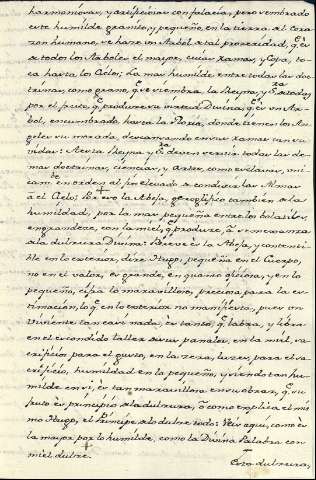 harmoniosas, y artificiosas con falacia, pero sembrado
este humilde granito, y pequeño, en la tierra al Cora-
zon humano, se hace un Arbol a tal proceridad, q.e es
a todos los Arboles el mayor, cuias ramas, y Copa, to-
ca hasta los Cielos; La mas humilde entre todas las doc-
trinas, como grano, que siembra la Reyna, y S.ra a todos,
por el fruto q.e produce su virtud Divina, q.e es un Ar-
bol, encumbrado hasta la Gloria, donde tienen los An-
geles su morada, descansando en sus ramas tan su
vidas: A esta Reyna y S.ra deben servir todas las de-
mas doctrinas, ciencias, y artes, como esclavas, uni-
cam.te en orden al fin elevado a conducir las Almas
a el Cielo; Por eso la Abeja, geroglifico tambien a la
humildad, por la mas pequeña entre los
engrandece, con la miel, q.e produce, a semejanza
a la dulzura Divina: Breve es la Abeja, y contenti-
ble en lo exterior, dice Hugo, pequeña en el Cuerpo,
no en el valor, es grande, en quanto oficiosa, y en lo
pequeño, cifra lo maravilloso, preciosa para la es-
timacion, lo q.e en lo exterior no manifiesta, pues un
viviente tan casi nada, es tanto, q.e labra, y libra
en el escondido taller a sus panales, en la miel, sa-
crificios para el gusto, en la cera, luzes, para el sa-
crificio, humildad en lo pequeño, y siendo tan hu-
milde en si, es tan maravillosa en su obrar, q.e su
fruto es principio a la dulzura, o como explica el mis-
mo Hugo, el Principe a lo dulce todo: Veis aqui, como es
la mayor por lo humilde, como la Divina Palabra con
miel dulce.
Esta dulzura,